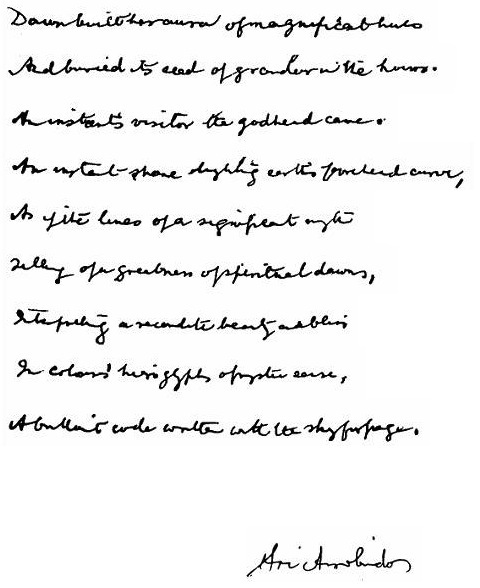 Dawn built her aura of magnificent hues
And buried its seed of grandeur in the hours.
An instant's visitor the godhead came.
An instant shone earth's forehead curve,
As if the lines of a significant myth
Telling of a greatness of spiritual dawns,
Interpreting a recondite beauty and bliss
In colour's hieroglyphs of mystic sense,
A brilliant code written with the sky for page.
Sri Aurobindo